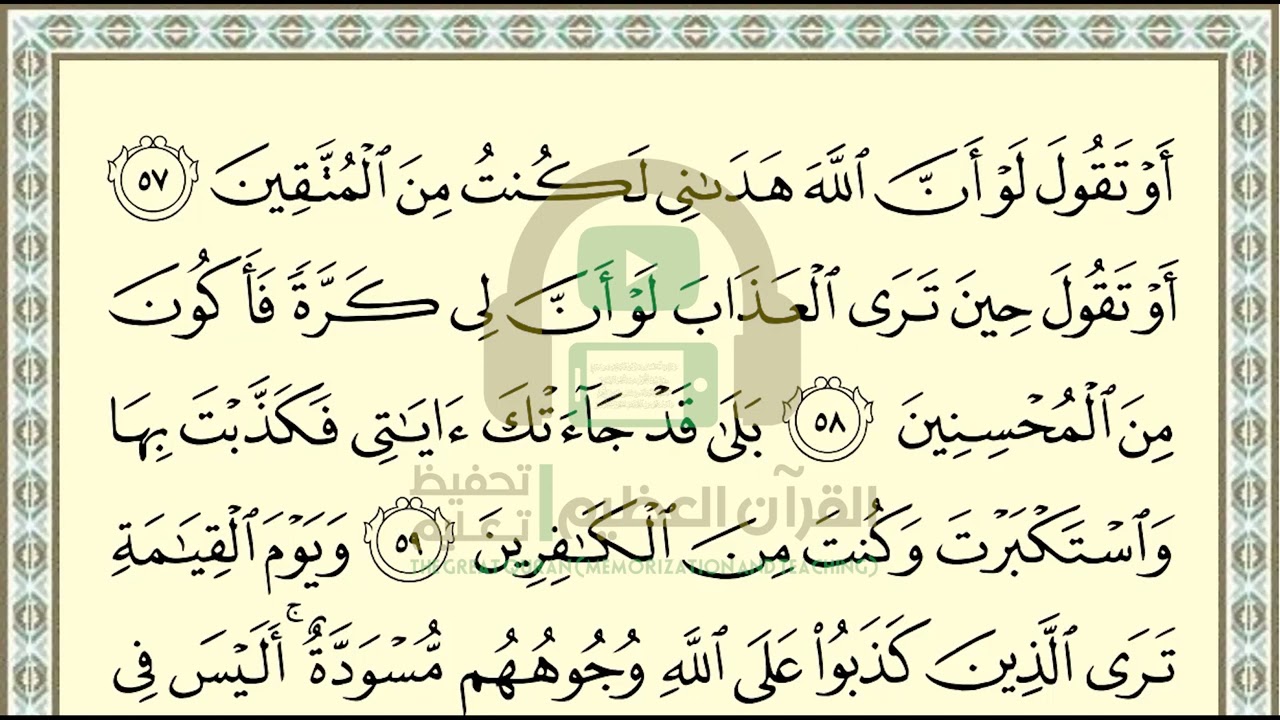 أَوۡ تَقُولَ لَوۡ أَنَّ ٱللَّهَ هَدَىٰنِي لَكُنتُ مِنَ ٱلۡمُتَّقِينَ ٥٧
أَوۡ تَقُولَ حِينَ تَرَى ٱلۡعَذَابَ لَوۡ أَنَّ لِي كَرَّةٗ فَأَكُونَ
مِنَ ٱلۡمُحۡسِنِينَ ٥٨ بَلَىٰ قَدۡ جَآءَتۡكَ ءَايَٰتِي فَكَذَّبۡتَ بِهَا
تحفيظ
القرآن العظيم | تعليم
وَٱسۡتَكۡبَرۡتَ وَكُنتَ مِنَ ٱلۡكَٰفِرِينَ ٥٩ وَيَوۡمَ ٱلۡقِيَٰمَةِ
THE GREAT QURAN (MEMORIZATION AND TEACHING)
تَرَى ٱلَّذِينَ كَذَبُواْ عَلَى ٱللَّهِ وُجُوهُهُم مُّسۡوَدَّةٌۚ أَلَيۡسَ فِي